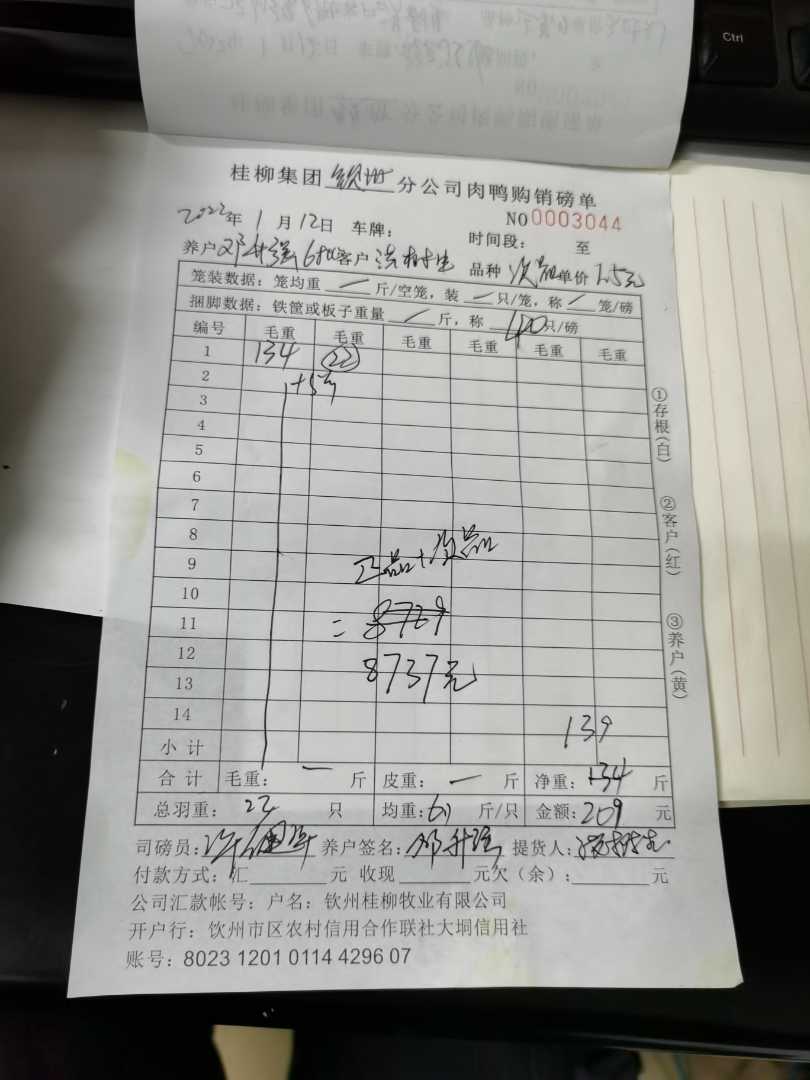 Ctrl
桂柳集团 钦州 分公司肉鸭购销磅单
NO 0003044
2022年 1 月 12日 车牌： 时间段： 至
养户 邓升强 6批 客户 品种 次品 单价 1.5元
笼装数据：笼均重 / 斤/空笼，装 / 只/笼，称 / 笼/磅
捆脚数据：铁筐或板子重量 / 斤，称 只/磅
编号 毛重 毛重 毛重 毛重 毛重 毛重
1 134 22
2 +5
3
4
5
6
7
8
9 正品+次品
10
11 = 8729
12 8737元
13
14 139
小 计
合 计 毛重： — 斤 皮重： — 斤 净重： 斤
总羽重： 23 只 均重： 斤/只 金额：209 元
司磅员： 养户签名：邓升强 提货人：
付款方式：汇 元 收现 元欠（余）： 元
公司汇款帐号：户名：钦州桂柳牧业有限公司
开户行：饮州市区农村信用合作联社大垌信用社
账号：8023 1201 0114 4296 07
①存根（白）
②客户（红）
③养户（黄）